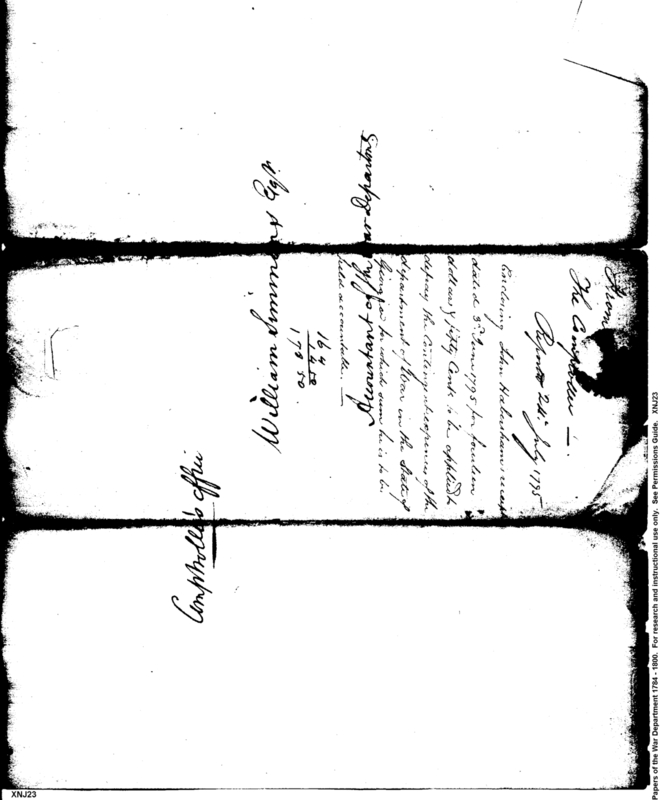 From
The Comptroller
Reported 24th July 1795
Enclosing John Habersham's receipt
dated 3d June 1795 for fourteen
dollars & fifty Cents to be applied to
defray the Contingent expences of the
department of War in the State of
Georgia for which sum he is to be
held accountable.
William Simmons Esqr.
Accountant of the War Departmt.
164
14 50
178 50
Comptroller's Office
XNJ23
Papers of the War Department 1784 - 1800. For research and instructional use only. See Permissions Guide. XNJ23